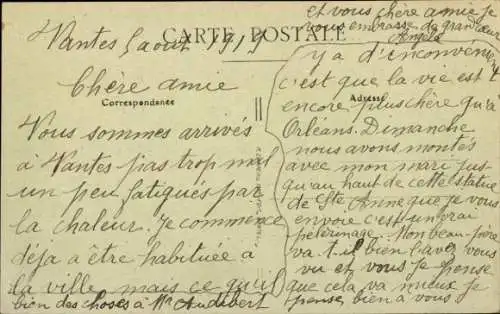 CARTE POSTALE
Correspondance
Adresse
Nantes 5 aout 1919
Chère amie
Vous sommes arrivés
à Nantes pas trop mal
un peu fatigués par
la chaleur. Je commence
déja a être habituée à
la ville mais ce qu'il
y a d'inconvenient
c'est que la vie est
encore plus chère qu'à
Orléans. Dimanche
nous avons montés
avec mon mari jus-
qu'au haut de cette statue
de Ste Anne que je vous
envoie c'est un vrai
pèlerinage. Mon beau-père
va-t-il bien l'avez vous
vu et vous je pense
que cela va mieux je
pense bien à vous.
bien des choses à Me Audebert
et vous chère amie je
vous embrasse de grand cœur
Angèle